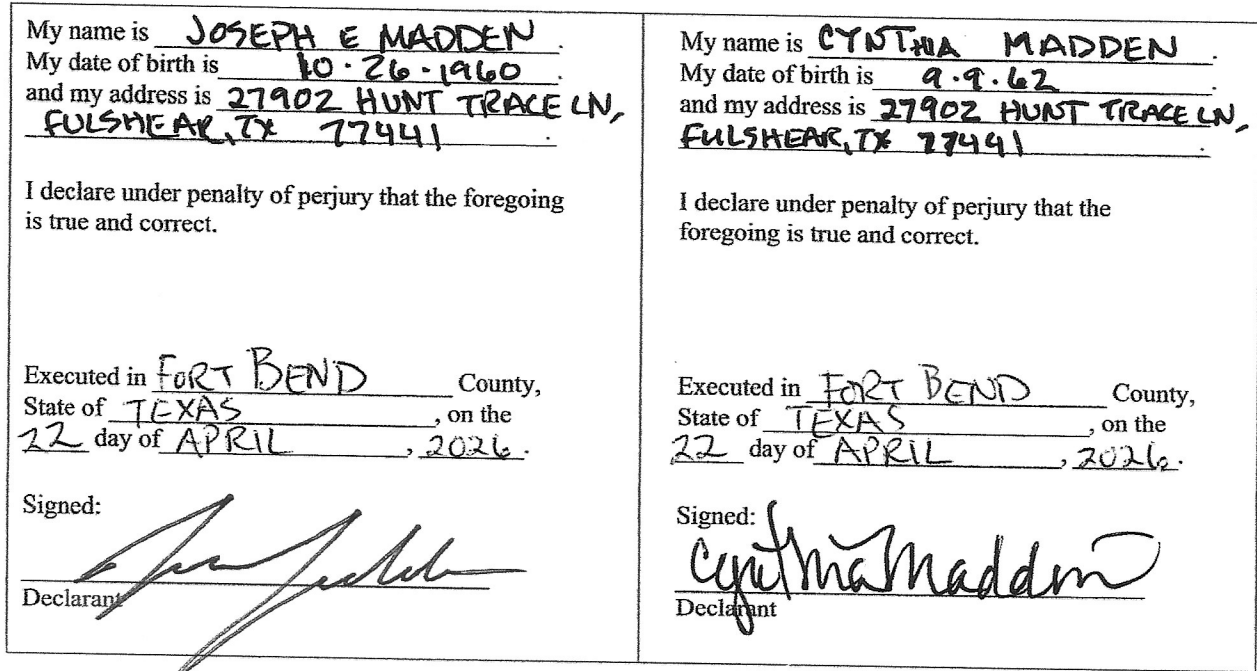 My name is JOSEPH E MADDEN.
My date of birth is 10·26·1960.
and my address is 27902 HUNT TRACE LN,
FULSHEAR, TX 77441.
I declare under penalty of perjury that the foregoing
is true and correct.
Executed in FORT BEND County,
State of TEXAS, on the
22 day of APRIL, 2026.
Signed:
Declarant
My name is CYNTHIA MADDEN.
My date of birth is 9.9.62.
and my address is 27902 HUNT TRACE LN,
FULSHEAR, TX 77441.
I declare under penalty of perjury that the
foregoing is true and correct.
Executed in FORT BEND County,
State of TEXAS, on the
22 day of APRIL, 2026.
Signed:
Cynthia Madden
Declarant